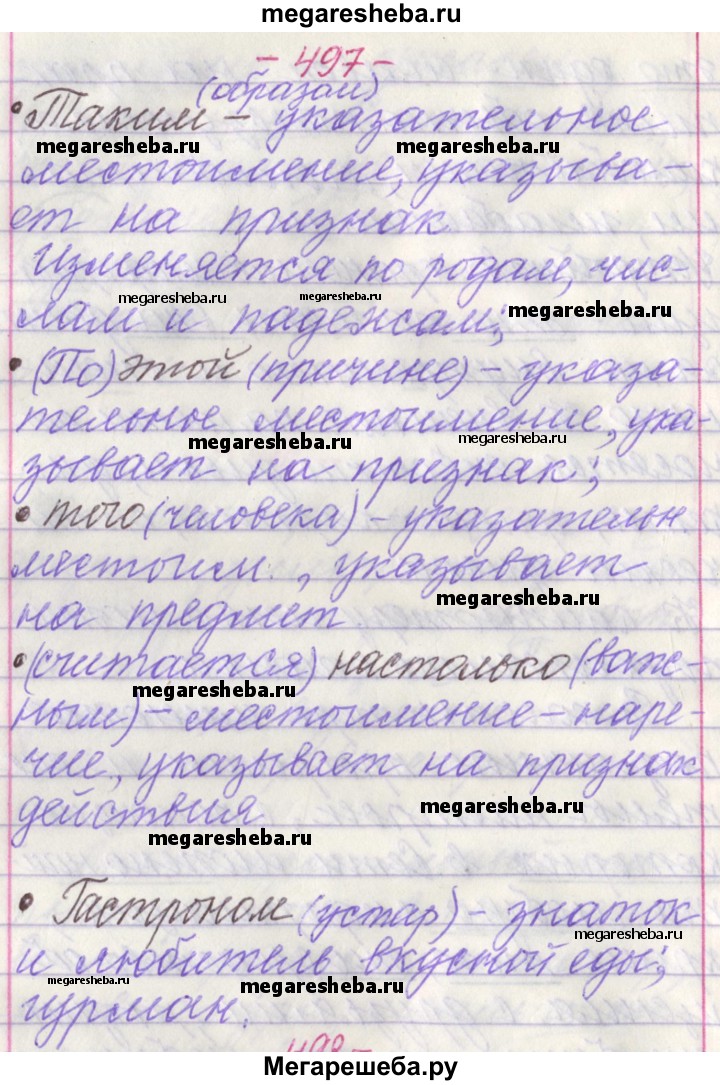 megaresheba.ru
- 497 -
(образом)
• Таким - указательное
megaresheba.ru megaresheba.ru
местоимение, указыва-
ет на признак
Изменяется по родам, чис-
megaresheba.ru megaresheba.ru megaresheba.ru
лам и падежам;
• (По) этой (причине) - указа-
тельное местоимение, ука-
megaresheba.ru megaresheba.ru
зывает на признак;
• того (человека) - указательн.
местоим., указывает
megaresheba.ru
на предмет
• (считается) настолько (важ-
megaresheba.ru
ным) - местоимение - наре-
чие, указывает на признак
действия
megaresheba.ru
megaresheba.ru
• Гастроном (устар) - знаток
megaresheba.ru
и любитель вкусной еды;
megaresheba.ru megaresheba.ru
гурман.
498 -
Мегарешеба.ру